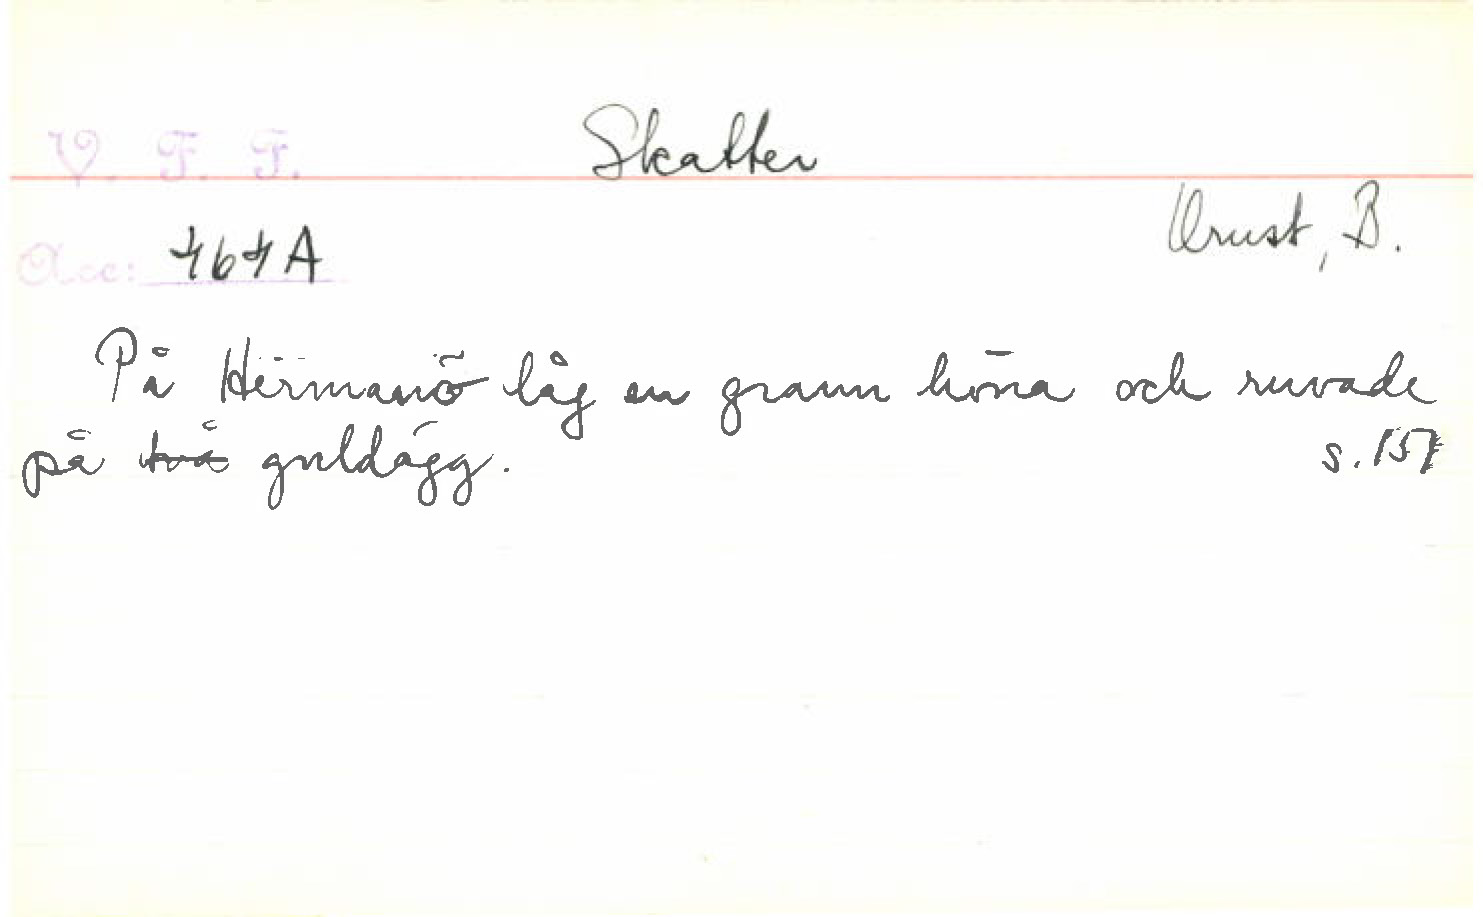 V. F. F. Skatter
Acc: 464A Orust, B.
På Hermanö låg en grann höna och ruvade
på två guldägg. s. 157